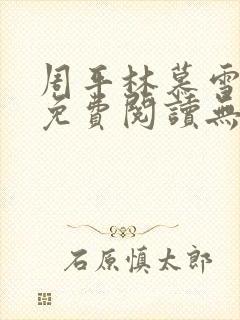 周平林慕雪
免費閱讀無
石原慎太郎